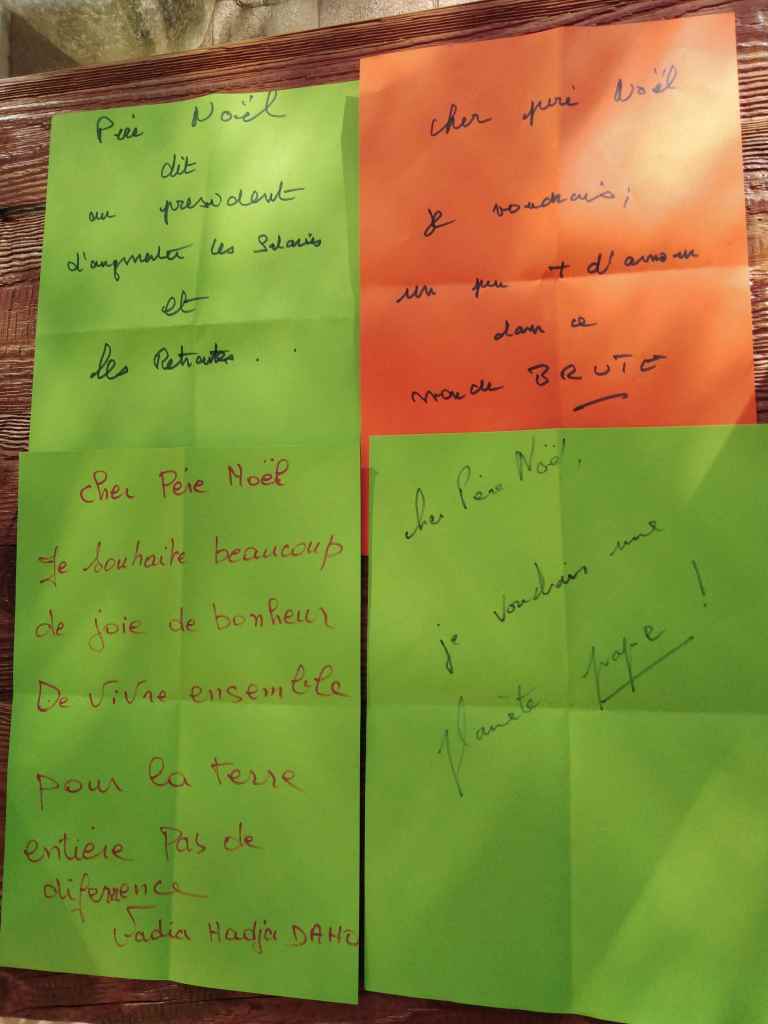 Père Noël
dit
au president
d'augmenter les Salaires
et
les Retraites . .
cher peré Noël
Je voudrais ;
un peu + d'amour
dans ce
monde BRUTE
cher Pére Noël
Je souhaite beaucoup
de joie de bonheur
De vivre ensemble
pour la terre
entière Pas de
diferrence
Hadja
cher Père Noël,
je voudrais une
planète propre !